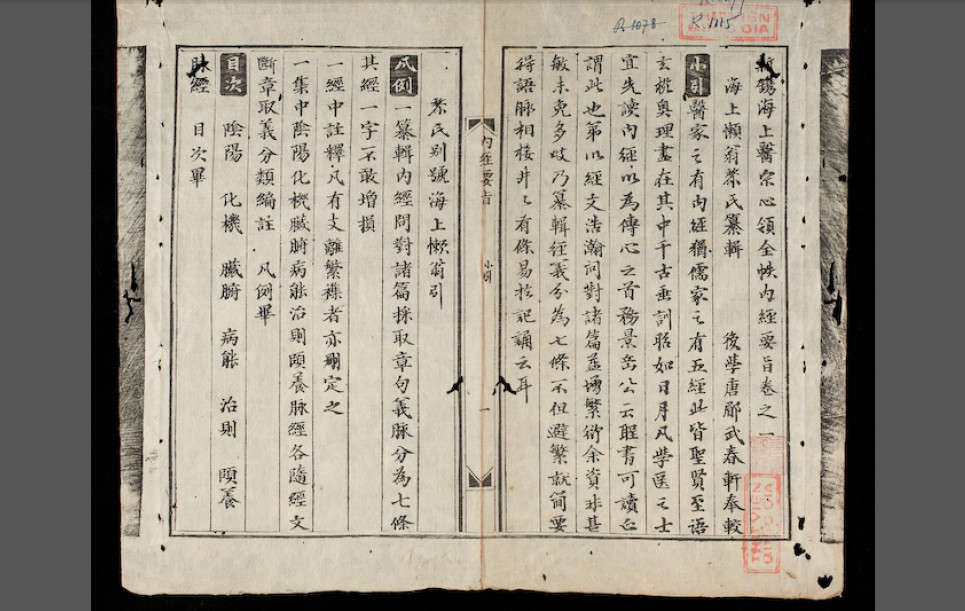 R.1078
R.1115
新鐫海上醫宗心領全帙內經要旨卷之一
海上懶翁黎氏纂輯 後學唐郿武春軒奉較
小引 醫家之有內經猶儒家之有五經此皆聖賢至語
玄機奧理盡在其中千古垂訓昭如日月凡學医之士
宜先讀內經以為傳心之首務景岳公云聖書可讀
謂此也第以經文浩瀚問對諸篇並增繁衍余資非甚
敏未克多岐乃纂輯經義分為七條不但避繁就簡要
得語脉相接井々有條易於記誦云耳
內經要旨 小引 一
黎氏别號海上懶翁引
凡例 一纂輯內經問對諸篇採取章句義脉分為七條
其經一字不敢增損
一經中註釋凡有支離繁雜者亦刪定之
一集中陰陽化機臟腑病能治則頤養脉經各隨經文
斷章取義分類編註 凡例畢
目次 陰陽 化機 臟腑 病能 治則 頤養
脉經 目次畢